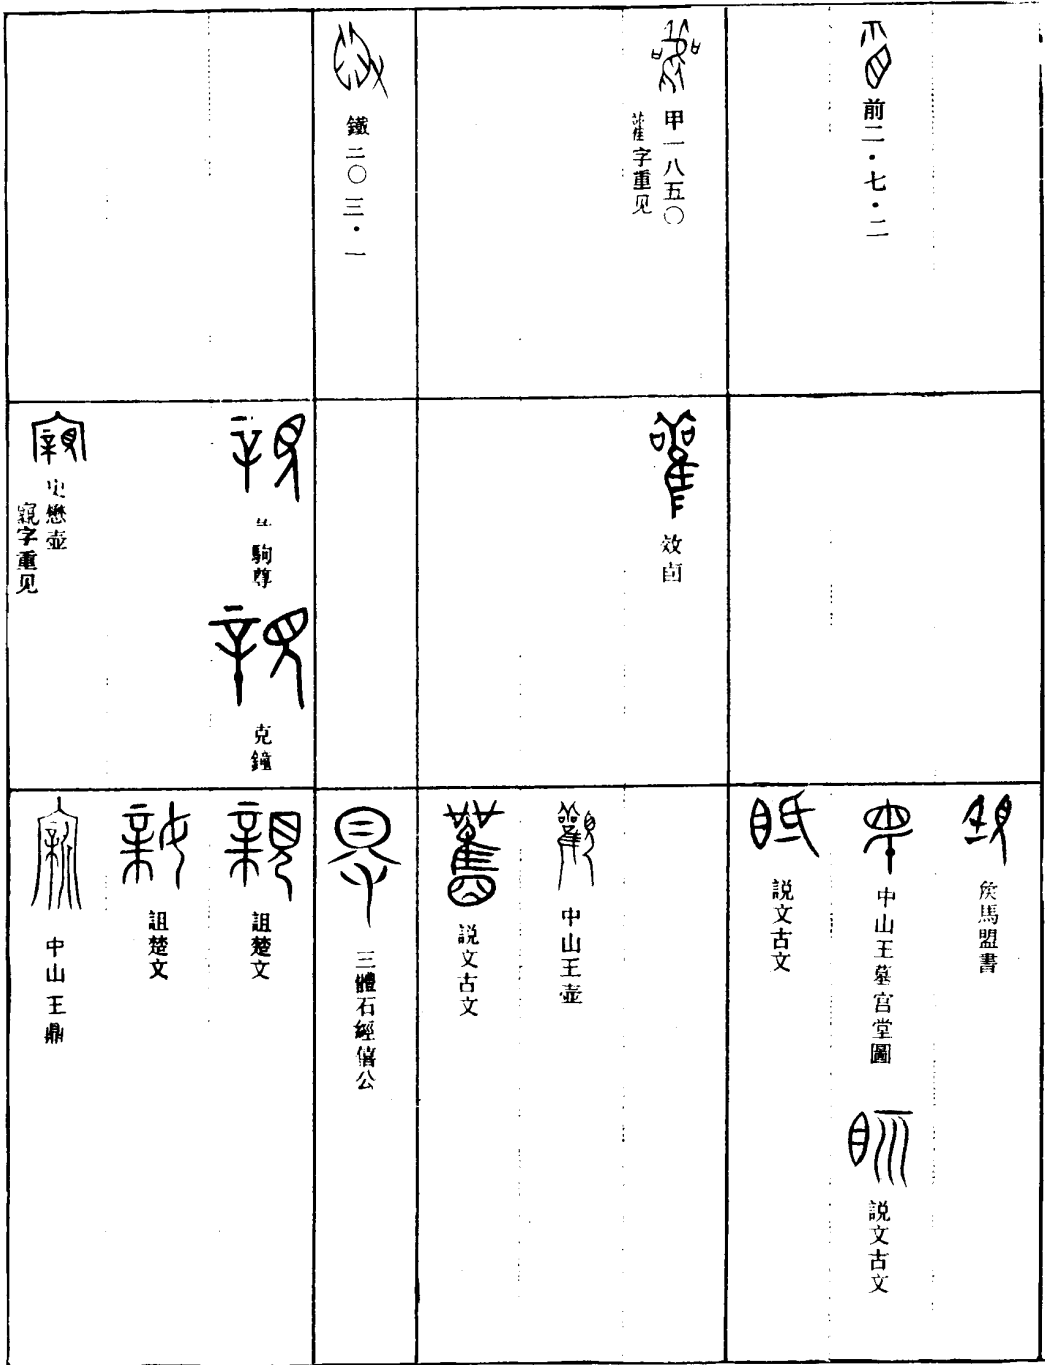 前二·七·二
甲一八五〇
雚字重见
鐵二〇三·一
效卣
駒尊
克鐘
史懋壺
寴字重见
侯馬盟書
中山王墓宮堂圖
説文古文
説文古文
中山王壺
説文古文
三體石經僖公
詛楚文
詛楚文
中山王鼎